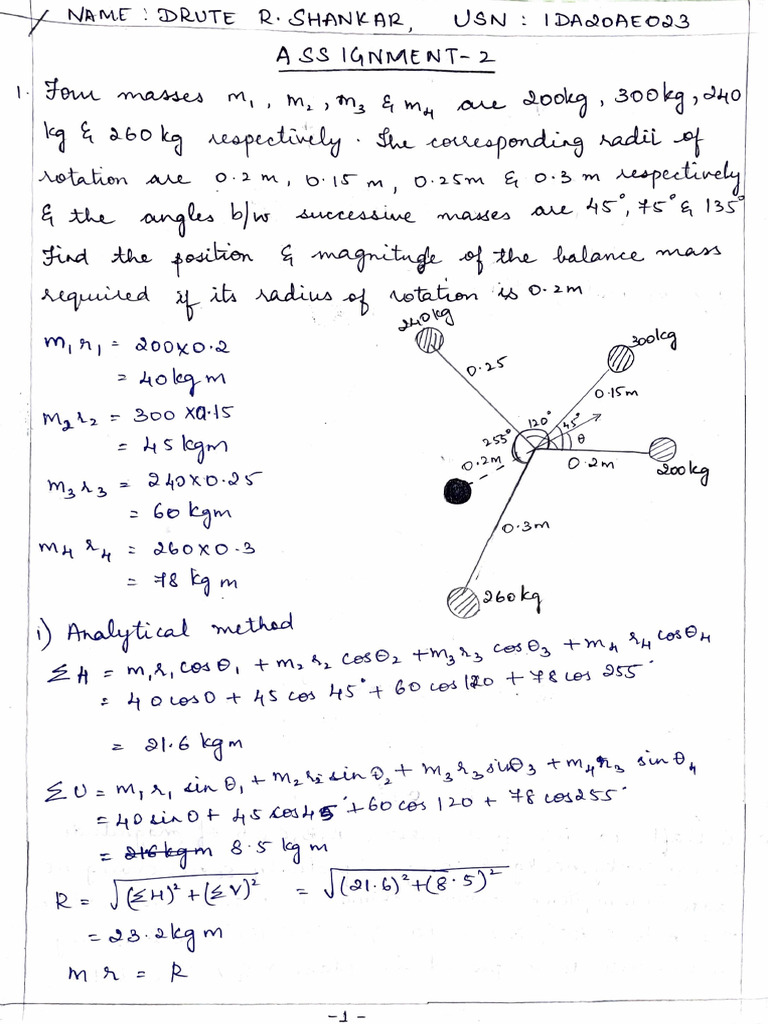 NAME : DRUTE R. SHANKAR, USN : 1DA20AE023
ASSIGNMENT-2
1. Four masses m1, m2, m3 & m4 are 200kg, 300kg, 240
kg & 260 kg respectively. The corresponding radii of
rotation are 0.2 m, 0.15 m, 0.25m & 0.3 m respectively
& the angles b/w successive masses are 45°, 75° & 135°
Find the position & magnitude of the balance mass
required if its radius of rotation is 0.2m
m1r1 = 200x0.2
= 40 kg m
m2r2 = 300 x0.15
= 45 kgm
m3r3 = 240x0.25
= 60 kgm
m4 r4 = 260x0.3
= 78 kg m
240kg
300kg
0.25
0.15m
120°
45°
255°
θ
0.2m
0.2m
200kg
0.3m
260kg
i) Analytical method
ΣH = m1r1cosθ1 + m2r2 cosθ2 + m3r3 cosθ3 + m4 r4 cosθ4
= 40 cos0 + 45 cos 45° + 60 cos 120 + 78 cos 255°
= 21.6 kgm
ΣU = m1r1 sin θ1 + m2r2 sin θ2 + m3r3 sinθ3 + m4r3 sin θ4
= 40 sin0 + 45 cos45° + 60 cos 120 + 78 cos255°
= 216 kgm 8.5 kg m
R = √(ΣH)² + (ΣV)² = √(21.6)² + (8.5)²
= 23.2kg m
m r = R
-1-